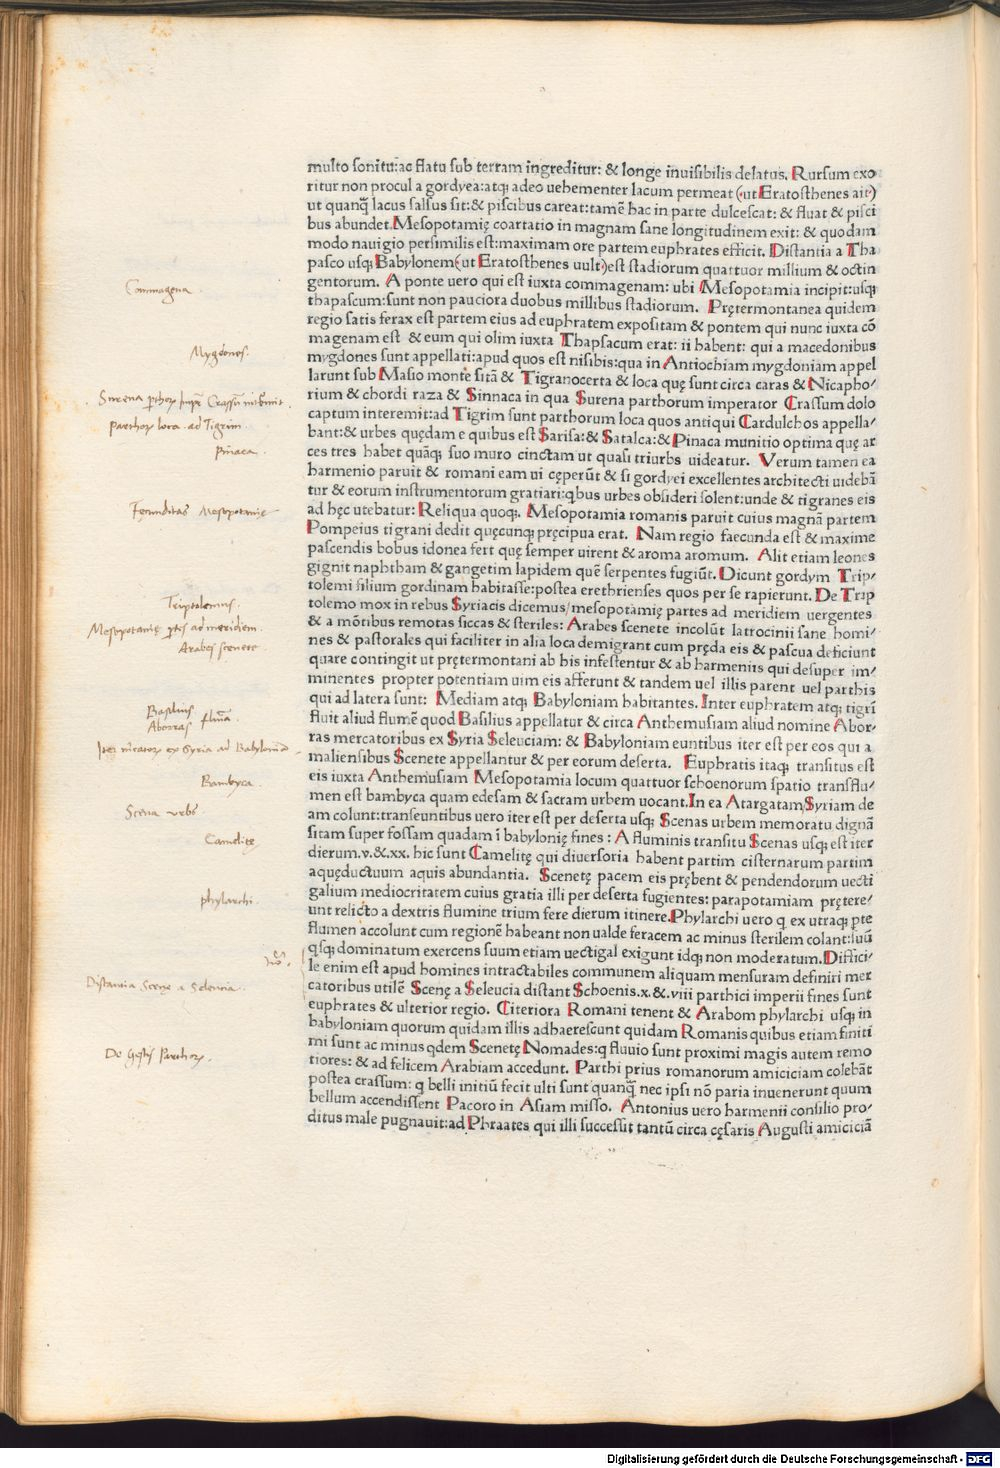 multo sonitu:ac flatu sub terram ingreditur: & longe inuisibilis delatus. Rursum exo
ritur non procul a gordyea:atq; adeo uehementer lacum permeat (ut Eratosthenes ait)
ut quanq̃ lacus salsus sit:& piscibus careat:tamẽ hac in parte dulcescat: & fluat & pisci
bus abundet. Mesopotamię coartatio in magnam sane longitudinem exit: & quodam
modo nauigio persimilis est:maximam ore partem euphrates efficit. Distantia a Tha
pasco usq; Babylonem (ut Eratosthenes uult) est stadiorum quattuor millium & octin
gentorum. A ponte uero qui est iuxta commagenam: ubi Mesopotamia incipit:usq;
Commagena
thapascum:sunt non pauciora duobus millibus stadiorum. Prętermontanea quidem
regio satis ferax est partem eius ad euphratem expositam & pontem qui nunc iuxta cõ
magenam est & eum qui olim iuxta Thapsacum erat: ii habent: qui a macedonibus
Mygdones.
mygdones sunt appellati:apud quos est nisibis:qua in Antiochiam mygdoniam appel
larunt sub Masio monte sitã & Tigranocerta & loca quę sunt circa caras & Nicapho/
rium & chordi raza & Sinnaca in qua Surena parthorum imperator Crassum dolo
captum interemit:ad Tigrim sunt parthorum loca quos antiqui Cardulchos appella/
Parthoꝝ loca ad Tigrim
bant:& urbes quędam e quibus est Sarisa:& Satalca:& Pinaca munitio optima quę ar
Pinaca.
ces tres habet quãq; suo muro cinctam ut quasi triurbs uideatur. Verum tamen ea
harmenio paruit & romani eam ui cęperũt & si gordyei excellentes architecti uidebã
tur & eorum instrumentorum gratiari:qbus urbes obsideri solent:unde & tigranes eis
ad hęc utebatur: Reliqua quoq;. Mesopotamia romanis paruit cuius magnã partem
Fecunditas Mesopotamię
Pompeius tigrani dedit quęcunq; pręcipua erat. Nam regio faecunda est & maxime
pascendis bobus idonea fert quę semper uirent & aroma aromum. Alit etiam leones
gignit naphtham & gangetim lapidem quẽ serpentes fugiũt. Dicunt gordym Trip/
tolemi filium gordinam habitasse:postea erethrienses quos per se rapierunt. De Trip
Triptolemus.
tolemo mox in rebus Syriacis dicemus/mesopotamię partes ad meridiem uergentes
Mesopotamię ꝑtes ad meridiem.
& a mõtibus remotas siccas & steriles: Arabes scenete incolũt latrocinii sane homi/
Arabes scenete.
nes & pastorales qui faciliter in alia loca demigrant cum pręda eis & pascua deficiunt
quare contingit ut prętermontani ab his infestentur & ab harmeniis qui desuper im/
minentes propter potentiam uim eis afferunt & tandem uel illis parent uel parthis
qui ad latera sunt: Mediam atq; Babyloniam habitantes. Inter euphratem atq; tigrũ
Basilius
Aborras
fluit aliud flumẽ quod Basilius appellatur & circa Anthemusiam aliud nomine Abor/
ras mercatoribus ex Syria Seleuciam: & Babyloniam euntibus iter est per eos qui a
maliensibus Scenete appellantur & per eorum deserta. Euphratis itaq; transitus est
eis iuxta Anthemusiam Mesopotamia locum quattuor schoenorum spatio transflu/
Bambyca.
men est bambyca quam edesam & sacram urbem uocant. In ea Atargatam/Syriam de
am colunt:transeuntibus uero iter est per deserta usq; Scenas urbem memoratu dignã
Scena urbs
sitam super fossam quadam ĩ babylonię fines: A fluminis transitu Scenas usq; est iter
Camelitę
dierum.v.&.xx. hic sunt Camelitę qui diuersoria habent partim cisternarum partim
aquęductuum aquis abundantia. Scenetę pacem eis prębent & pendendorum uecti
galium mediocritatem cuius gratia illi per deserta fugientes: parapotamiam prętere/
phylarchi.
unt relicto a dextris flumine trium fere dierum itinere. Phylarchi uero q ex utraq; pte
flumen accolunt cum regionẽ habeant non ualde feracem ac minus sterilem colant:suũ
qsq; dominatum exercens suum etiam uectigal exigunt idq; non moderatum. Diffici/
le enim est apud homines intractabiles communem aliquam mensuram definiri mer
catoribus utilẽ Scenę a Seleucia distant Schoenis.x.&.viii parthici imperii fines sunt
Distantia Scenę a Seleucia.
euphrates & ulterior regio. Citeriora Romani tenent & Arabom phylarchi usq; in
babyloniam quorum quidam illis adhaerescunt quidam Romanis quibus etiam finiti
mi sunt ac minus qdem Scenetę Nomades:q fluuio sunt proximi magis autem remo
tiores: & ad felicem Arabiam accedunt. Parthi prius romanorum amiciciam colebãt
De Gestis Parthoꝝ.
postea crassum: q belli initiũ fecit ulti sunt quanq̃ nec ipsi nõ paria inuenerunt quum
bellum accendissent Pacoro in Asiam misso. Antonius uero harmenii consilio pro/
ditus male pugnauit:ad Phraates qui illi successit tantũ circa cęsaris Augusti amiciciã
Digitalisierung gefördert durch die Deutsche Forschungsgemeinschaft - DFG